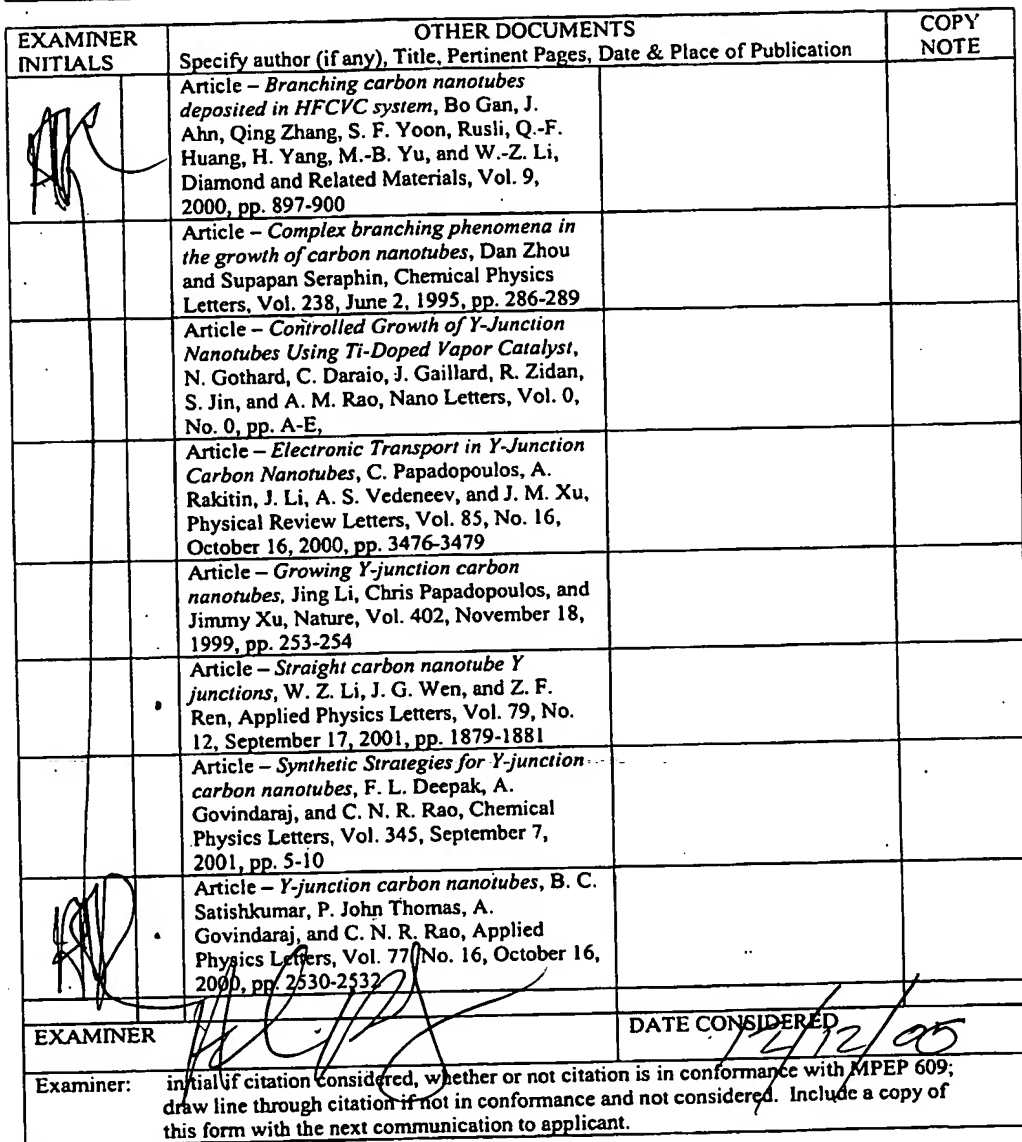 EXAMINER INITIALS
OTHER DOCUMENTS
Specify author (if any), Title, Pertinent Pages, Date & Place of Publication
COPY NOTE
Article – Branching carbon nanotubes
deposited in HFCVC system, Bo Gan, J.
Ahn, Qing Zhang, S. F. Yoon, Rusli, Q.-F.
Huang, H. Yang, M.-B. Yu, and W.-Z. Li,
Diamond and Related Materials, Vol. 9,
2000, pp. 897-900
Article – Complex branching phenomena in
the growth of carbon nanotubes, Dan Zhou
and Supapan Seraphin, Chemical Physics
Letters, Vol. 238, June 2, 1995, pp. 286-289
Article – Controlled Growth of Y-Junction
Nanotubes Using Ti-Doped Vapor Catalyst,
N. Gothard, C. Daraio, J. Gaillard, R. Zidan,
S. Jin, and A. M. Rao, Nano Letters, Vol. 0,
No. 0, pp. A-E,
Article – Electronic Transport in Y-Junction
Carbon Nanotubes, C. Papadopoulos, A.
Rakitin, J. Li, A. S. Vedeneev, and J. M. Xu,
Physical Review Letters, Vol. 85, No. 16,
October 16, 2000, pp. 3476-3479
Article – Growing Y-junction carbon
nanotubes, Jing Li, Chris Papadopoulos, and
Jimmy Xu, Nature, Vol. 402, November 18,
1999, pp. 253-254
Article – Straight carbon nanotube Y
junctions, W. Z. Li, J. G. Wen, and Z. F.
Ren, Applied Physics Letters, Vol. 79, No.
12, September 17, 2001, pp. 1879-1881
Article – Synthetic Strategies for Y-junction
carbon nanotubes, F. L. Deepak, A.
Govindaraj, and C. N. R. Rao, Chemical
Physics Letters, Vol. 345, September 7,
2001, pp. 5-10
Article – Y-junction carbon nanotubes, B. C.
Satishkumar, P. John Thomas, A.
Govindaraj, and C. N. R. Rao, Applied
Physics Letters, Vol. 77, No. 16, October 16,
2000, pp. 2530-2532
EXAMINER
DATE CONSIDERED 12/12/05
Examiner: initial if citation considered, whether or not citation is in conformance with MPEP 609;
draw line through citation if not in conformance and not considered. Include a copy of
this form with the next communication to applicant.